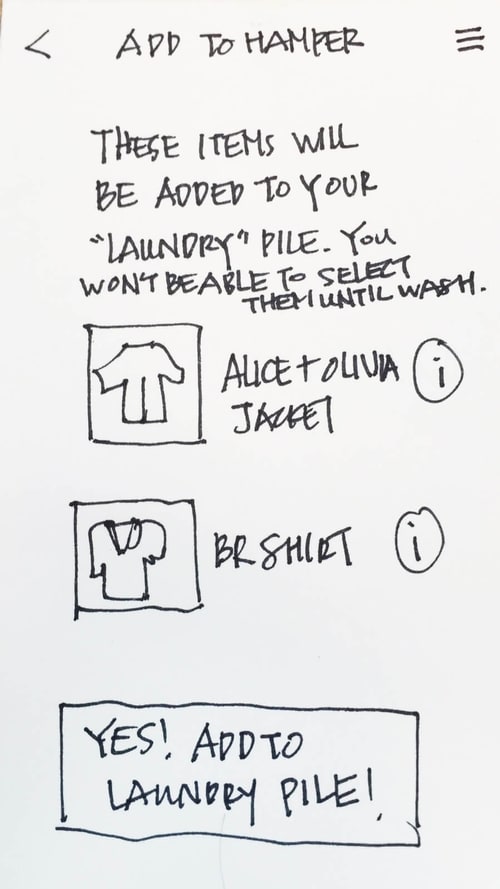 < ADD TO HAMPER ≡
THESE ITEMS WILL
BE ADDED TO YOUR
"LAUNDRY" PILE. YOU
WON'T BE ABLE TO SELECT
THEM UNTIL WASH.
ALICE + OLIVIA
JACKET
i
BR SHIRT i
YES! ADD TO
LAUNDRY PILE!